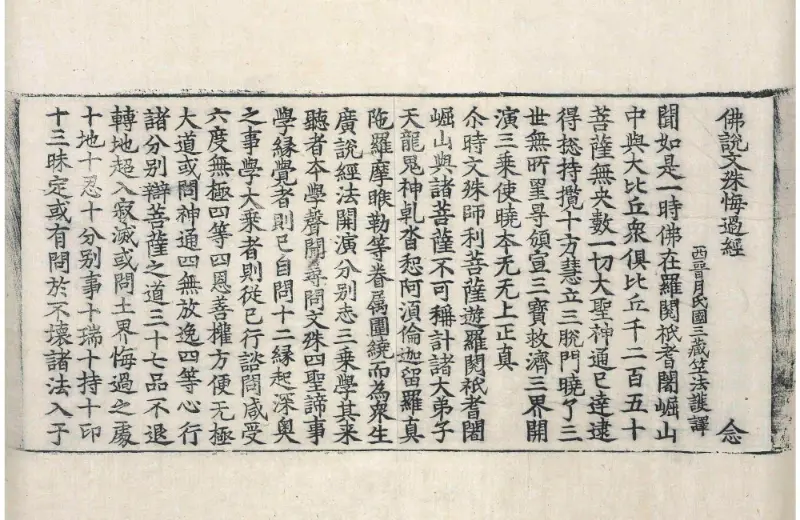 佛說文殊悔過經　念
西晉月氏國三藏竺法護譯
聞如是一時佛在羅閱祇耆闍崛山
中與大比丘衆俱比丘千二百五十
菩薩無央數一切大聖神通已達逮
得捴持攬十方慧立三脫門曉了三
世無所罣㝵頒宣三寶救濟三界開
演三乘使曉本无无上正真
尒時文殊師利菩薩遊羅閱祇耆闍
崛山與諸菩薩不可稱計諸大弟子
天龍鬼神乹沓惒阿湏倫迦留羅真
陁羅摩睺勒等眷属圍繞而為衆生
廣說經法開演分別志三乘學其来
聽者本學聲聞尋問文殊四聖諦事
學緣覺者則已自問十二緣起深奧
之事學大乘者則從已行諮問咸受
六度無極四等四恩善權方便无極
大道或問神通四無放逸四等心行
諸分別辯菩薩之道三十七品不退
轉地超入寂滅或問土界悔過之處
十地十忍十分別事十瑞十持十印
十三昧定或有問於不壞諸法入于